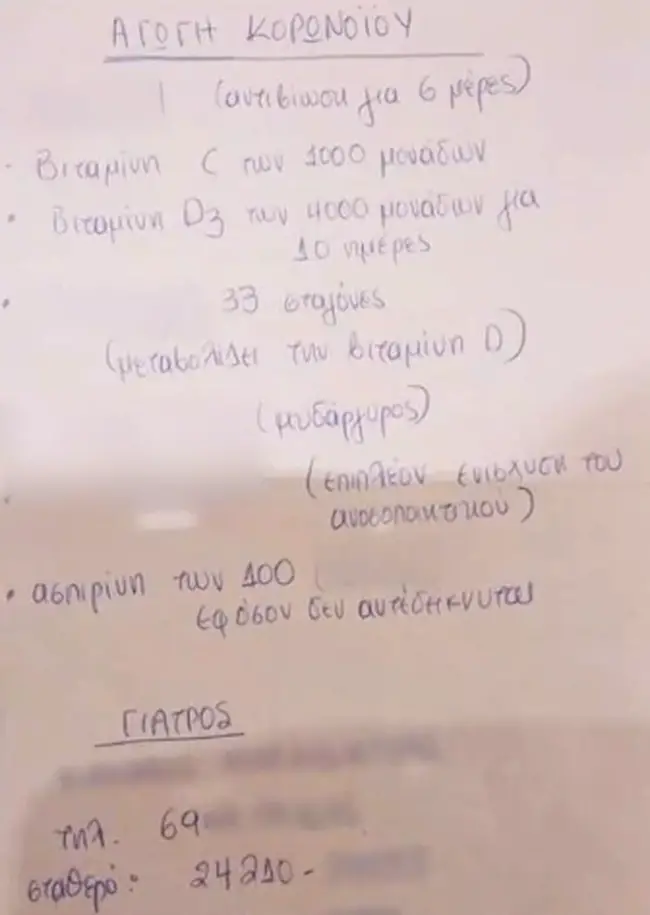 ΑΓΩΓΗ ΚΟΡΩΝΟΪΟΥ
(αντιβίωση για 6 μέρες)
· Βιταμίνη C των 1000 μονάδων
· Βιταμίνη D3 των 4000 μονάδων για
10 ημέρες
· 33 σταγόνες
(μεταβολίζει την βιταμίνη D)
(μυδάργυρος)
(επιπλέον ενίσχυση του
ανοσοποιητικού)
· ασπιρίνη των 100
εφόσον δεν αντεδείκνυται
ΓΙΑΤΡΟΣ
τηλ. 69
σταθερό: 24210-